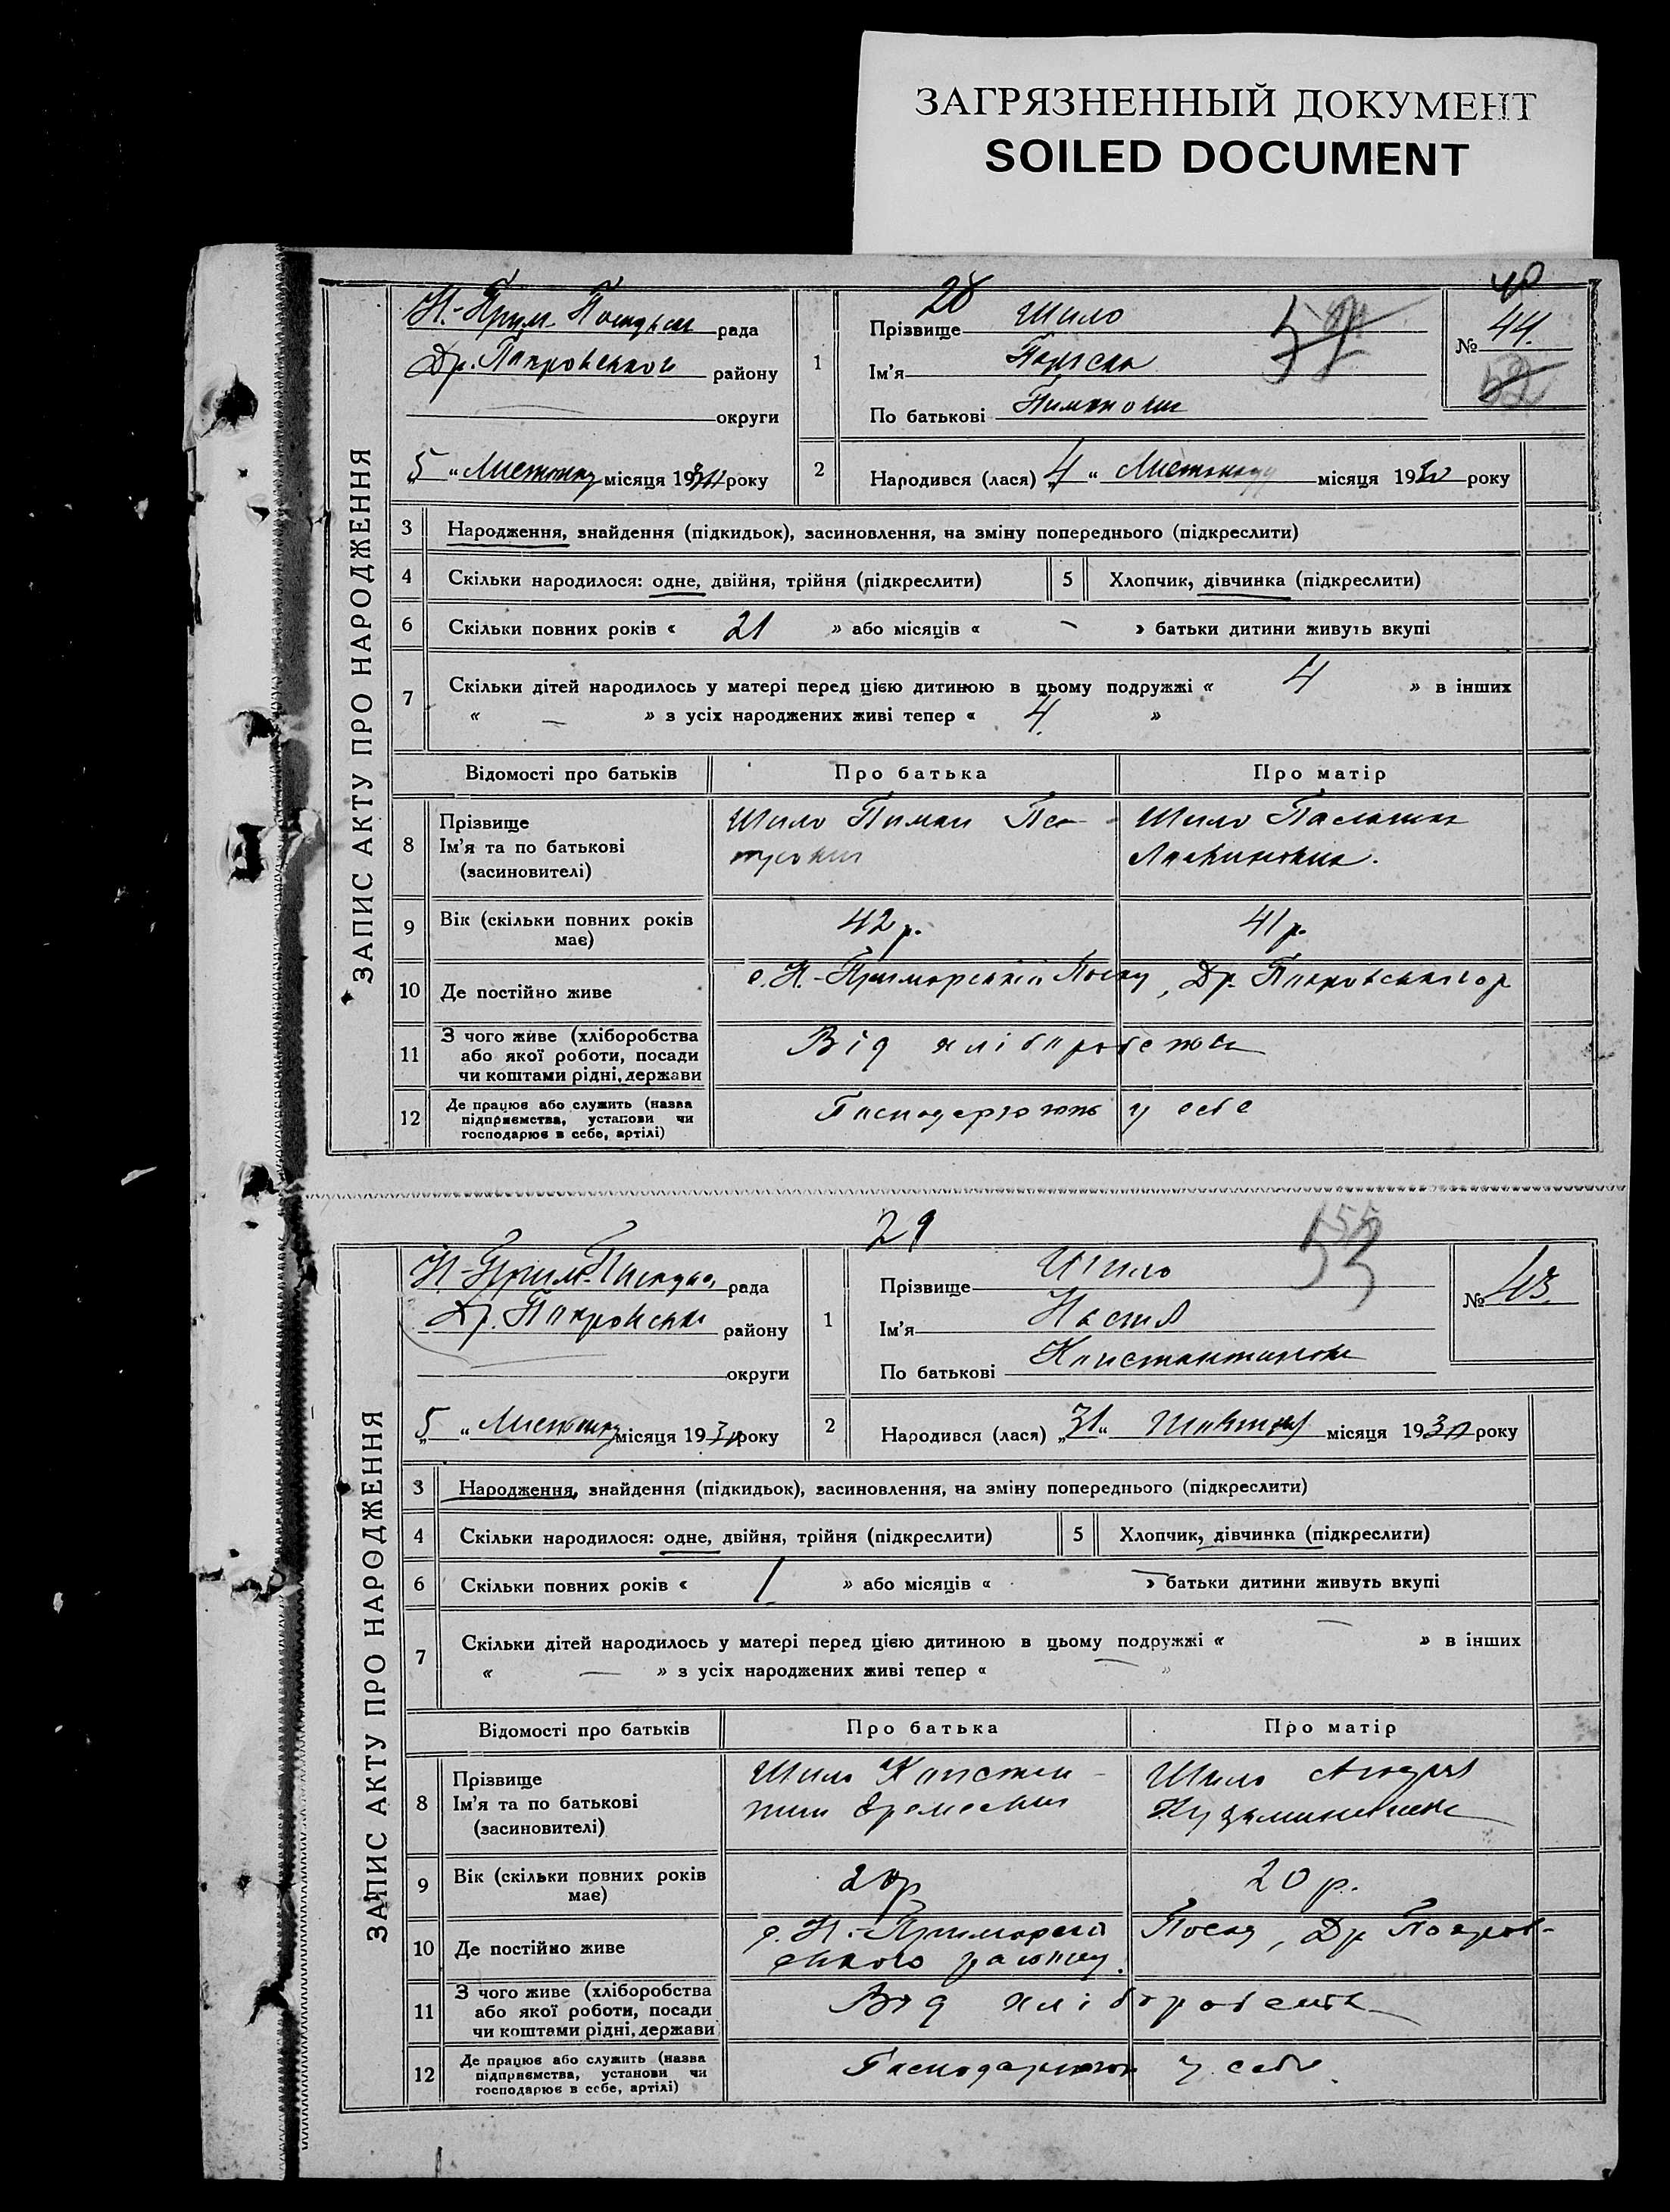 ЗАГРЯЗНЕННЫЙ ДОКУМЕНТ
SOILED DOCUMENT
ЗАПИС АКТУ ПРО НАРОДЖЕННЯ
28
Н.-Прим. рада
Др. Покровського району
округи
1
Прізвище Шило
Ім'я
По батькові
№ 44.
5 " місяця 19 року
2
Народився (лася) „4 " Листопаду місяця 1930 року
3 Народження, знайдення (підкидьок), засиновлення, на зміну попереднього (підкреслити)
4 Скільки народилося: одне, двійня, трійня (підкреслити) 5 Хлопчик, дівчинка (підкреслити)
6 Скільки повних років « 21 » або місяців « – » батьки дитини живуть вкупі
7 Скільки дітей народилось у матері перед цією дитиною в цьому подружжі « 4 » в інших
« — » з усіх народжених живі тепер « 4 »
Відомості про батьків Про батька Про матір
8 Прізвище
Ім'я та по батькові
(засиновителі)
Шило Пимон
Шило
9 Вік (скільки повних років
має)
42 р. 41 р.
10 Де постійно живе с. Н.-Приморський Посад, Др. Покровського р
11 З чого живе (хліборобства
або якої роботи, посади
чи коштами рідні, держави
Від хліборобства
12 Де працює або служить (назва
підприємства, установи чи
господарює в себе, артілі)
Господарюють у себе
ЗАПИС АКТУ ПРО НАРОДЖЕННЯ
29
53
Н-Прим. рада
Др. Покровськ району
округи
1
Прізвище Шило
Ім'я Настя
По батькові
№ 43.
„5 " місяця 1930 року
2
Народився (лася) „31" Жовтня місяця 1930 року
3 Народження, знайдення (підкидьок), засиновлення, на зміну попереднього (підкреслити)
4 Скільки народилося: одне, двійня, трійня (підкреслити) 5 Хлопчик, дівчинка (підкреслити)
6 Скільки повних років « 1 » або місяців « » батьки дитини живуть вкупі
7 Скільки дітей народилось у матері перед цією дитиною в цьому подружжі « — » в інших
« — » з усіх народжених живі тепер « — »
Відомості про батьків Про батька Про матір
8 Прізвище
Ім'я та по батькові
(засиновителі)
Шило Констан-
тин
Шило
9 Вік (скільки повних років
має)
20 р 20 р.
10 Де постійно живе
с. Н.-Приморськ Посад, Др Покров-
ського району.
11 З чого живе (хліборобства
або якої роботи, посади
чи коштами рідні, держави
Від хліборобства
12 Де працює або служить (назва
підприємства, установи чи
господарює в себе, артілі)
Господарюють у себе.